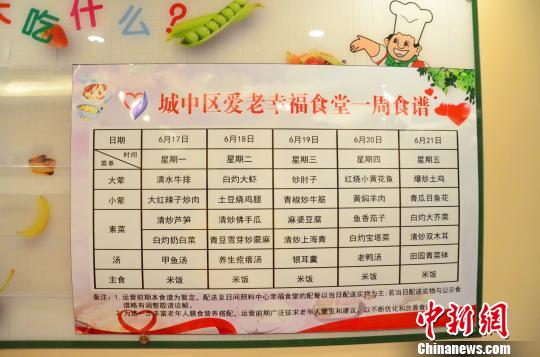 天吃什么?
城中区爱老幸福食堂一周食谱
日期 6月17日 6月18日 6月19日 6月20日 6月21日
时间 菜单 星期一 星期二 星期三 星期四 星期五
大荤 清水牛排 白灼大虾 炒肘子 红烧小黄花鱼 爆炒土鸡
小荤 大红辣子炒肉 土豆烧鸡腿 青椒炒牛筋 黄焖羊肉 青瓜目鱼花
素菜 清炒芦笋 清炒佛手瓜 麻婆豆腐 鱼香茄子 白灼大芥菜
白灼奶白菜 青豆雪芽炒蕨麻 清炒上海青 白灼宝塔菜 清炒双木耳
汤 甲鱼汤 养生疙瘩汤 银耳羹 老鸭汤 田园青菜钵
主食 米饭 米饭 米饭 米饭 米饭
备注：1. 运营前期本食谱为暂定，配送至日间照料中心幸福食堂的配餐以当日配送实物为主；若当日配送实物与公示食
谱略有调整敬请谅解；
2. 为进一步丰富老年人膳食营养搭配，运营前期广泛征求老年人意见和建议，以不断优化和改善食谱
中新网
Chinanews.com